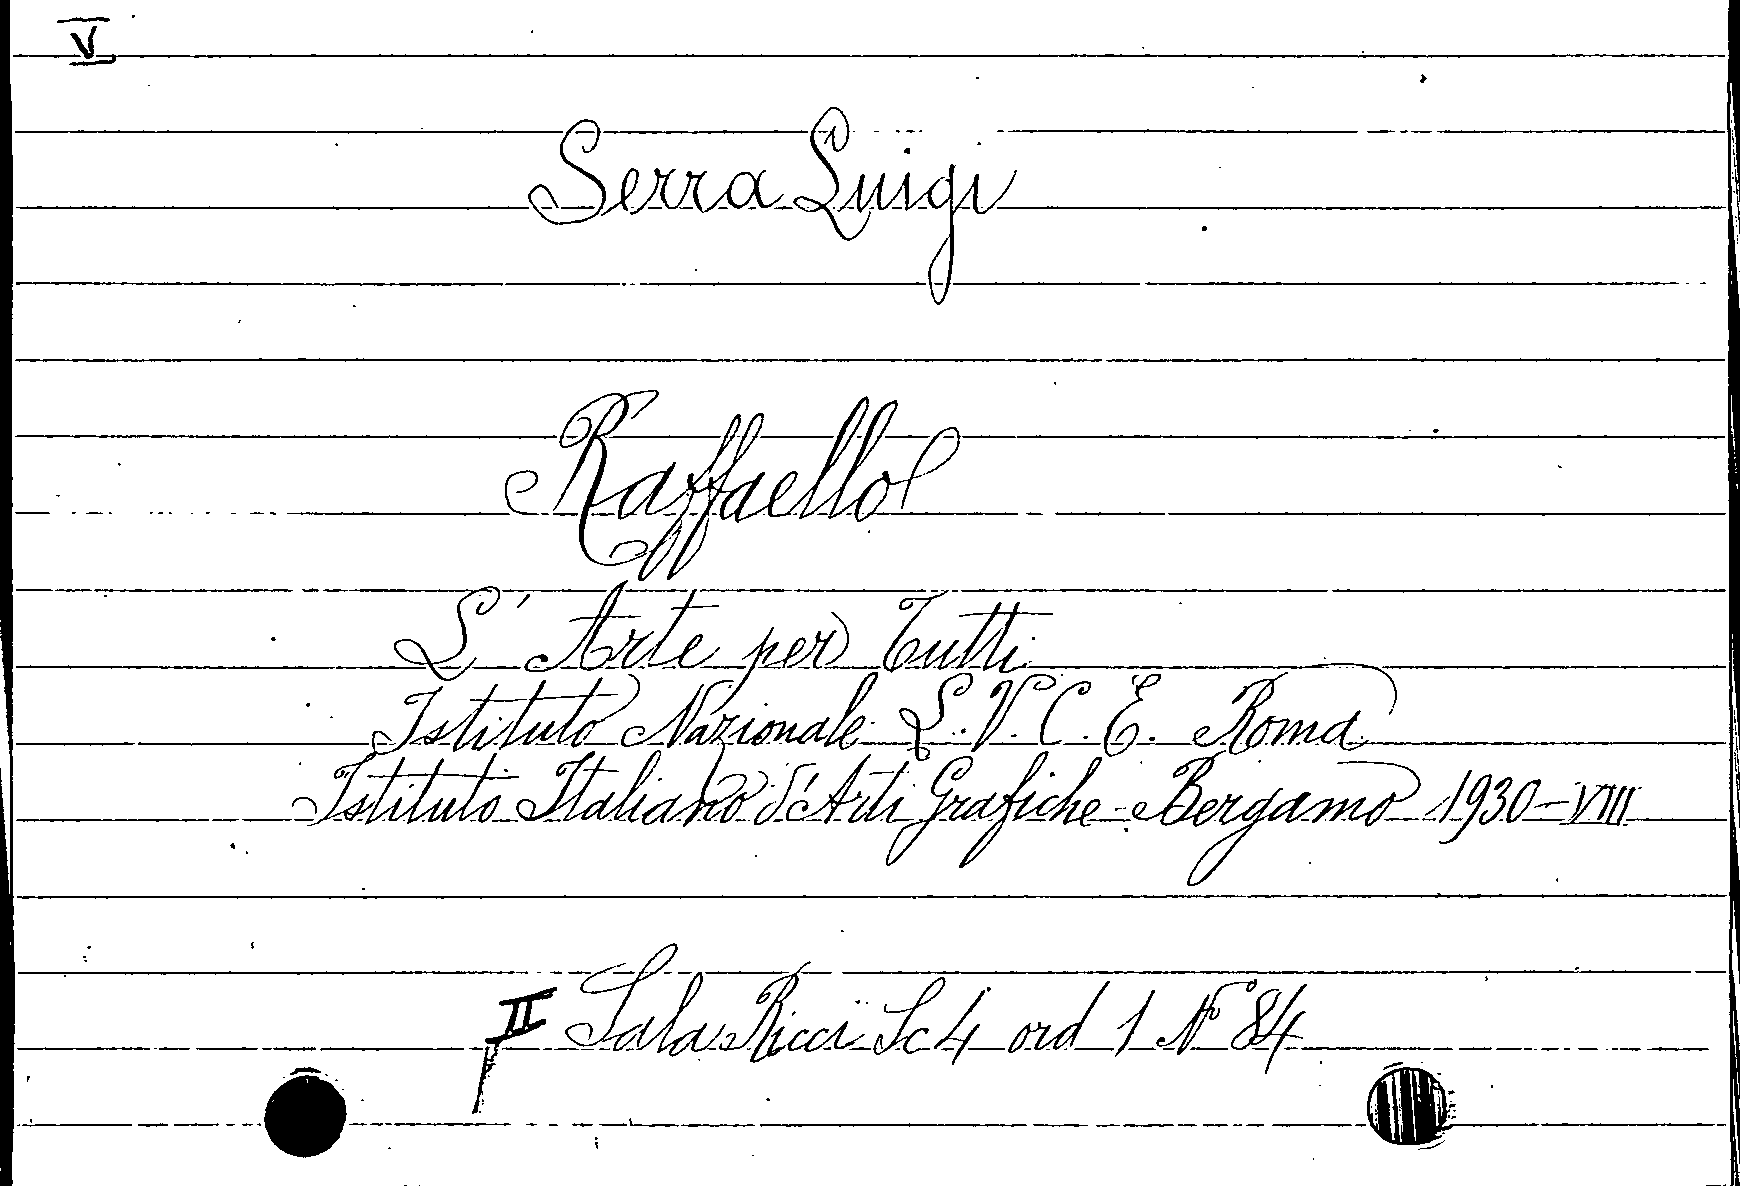 V
Serra Luigi
Raffaello
L'Arte per Tutti
Istituto Nazionale L.V.C.E. Roma
Istituto Italiano d'Arti Grafiche - Bergamo 1930-VIII
II Sala Ricci Sc 4 ord 1 N° 84